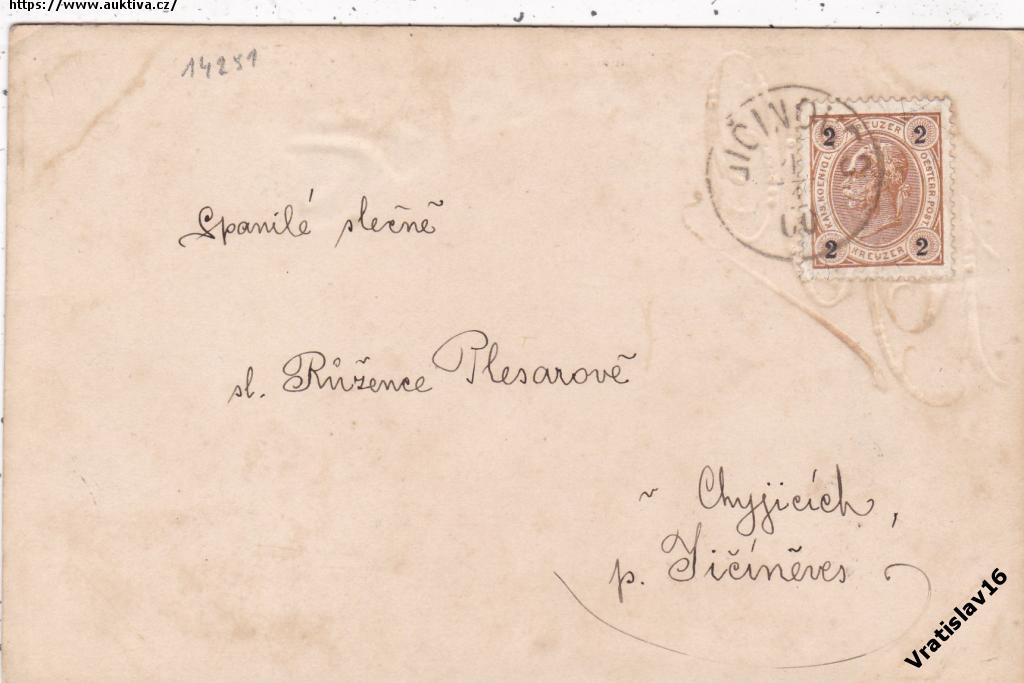 https://www.auktiva.cz/
14251
JIČINOVES
2 KREUZER 2
KAIS. KOENIGL. OESTERR. POST
2 KREUZER 2
Spanilé slečně
sl. Růžence Plesarově
v Chyjicích,
p. Jičíněves
Vratislav16